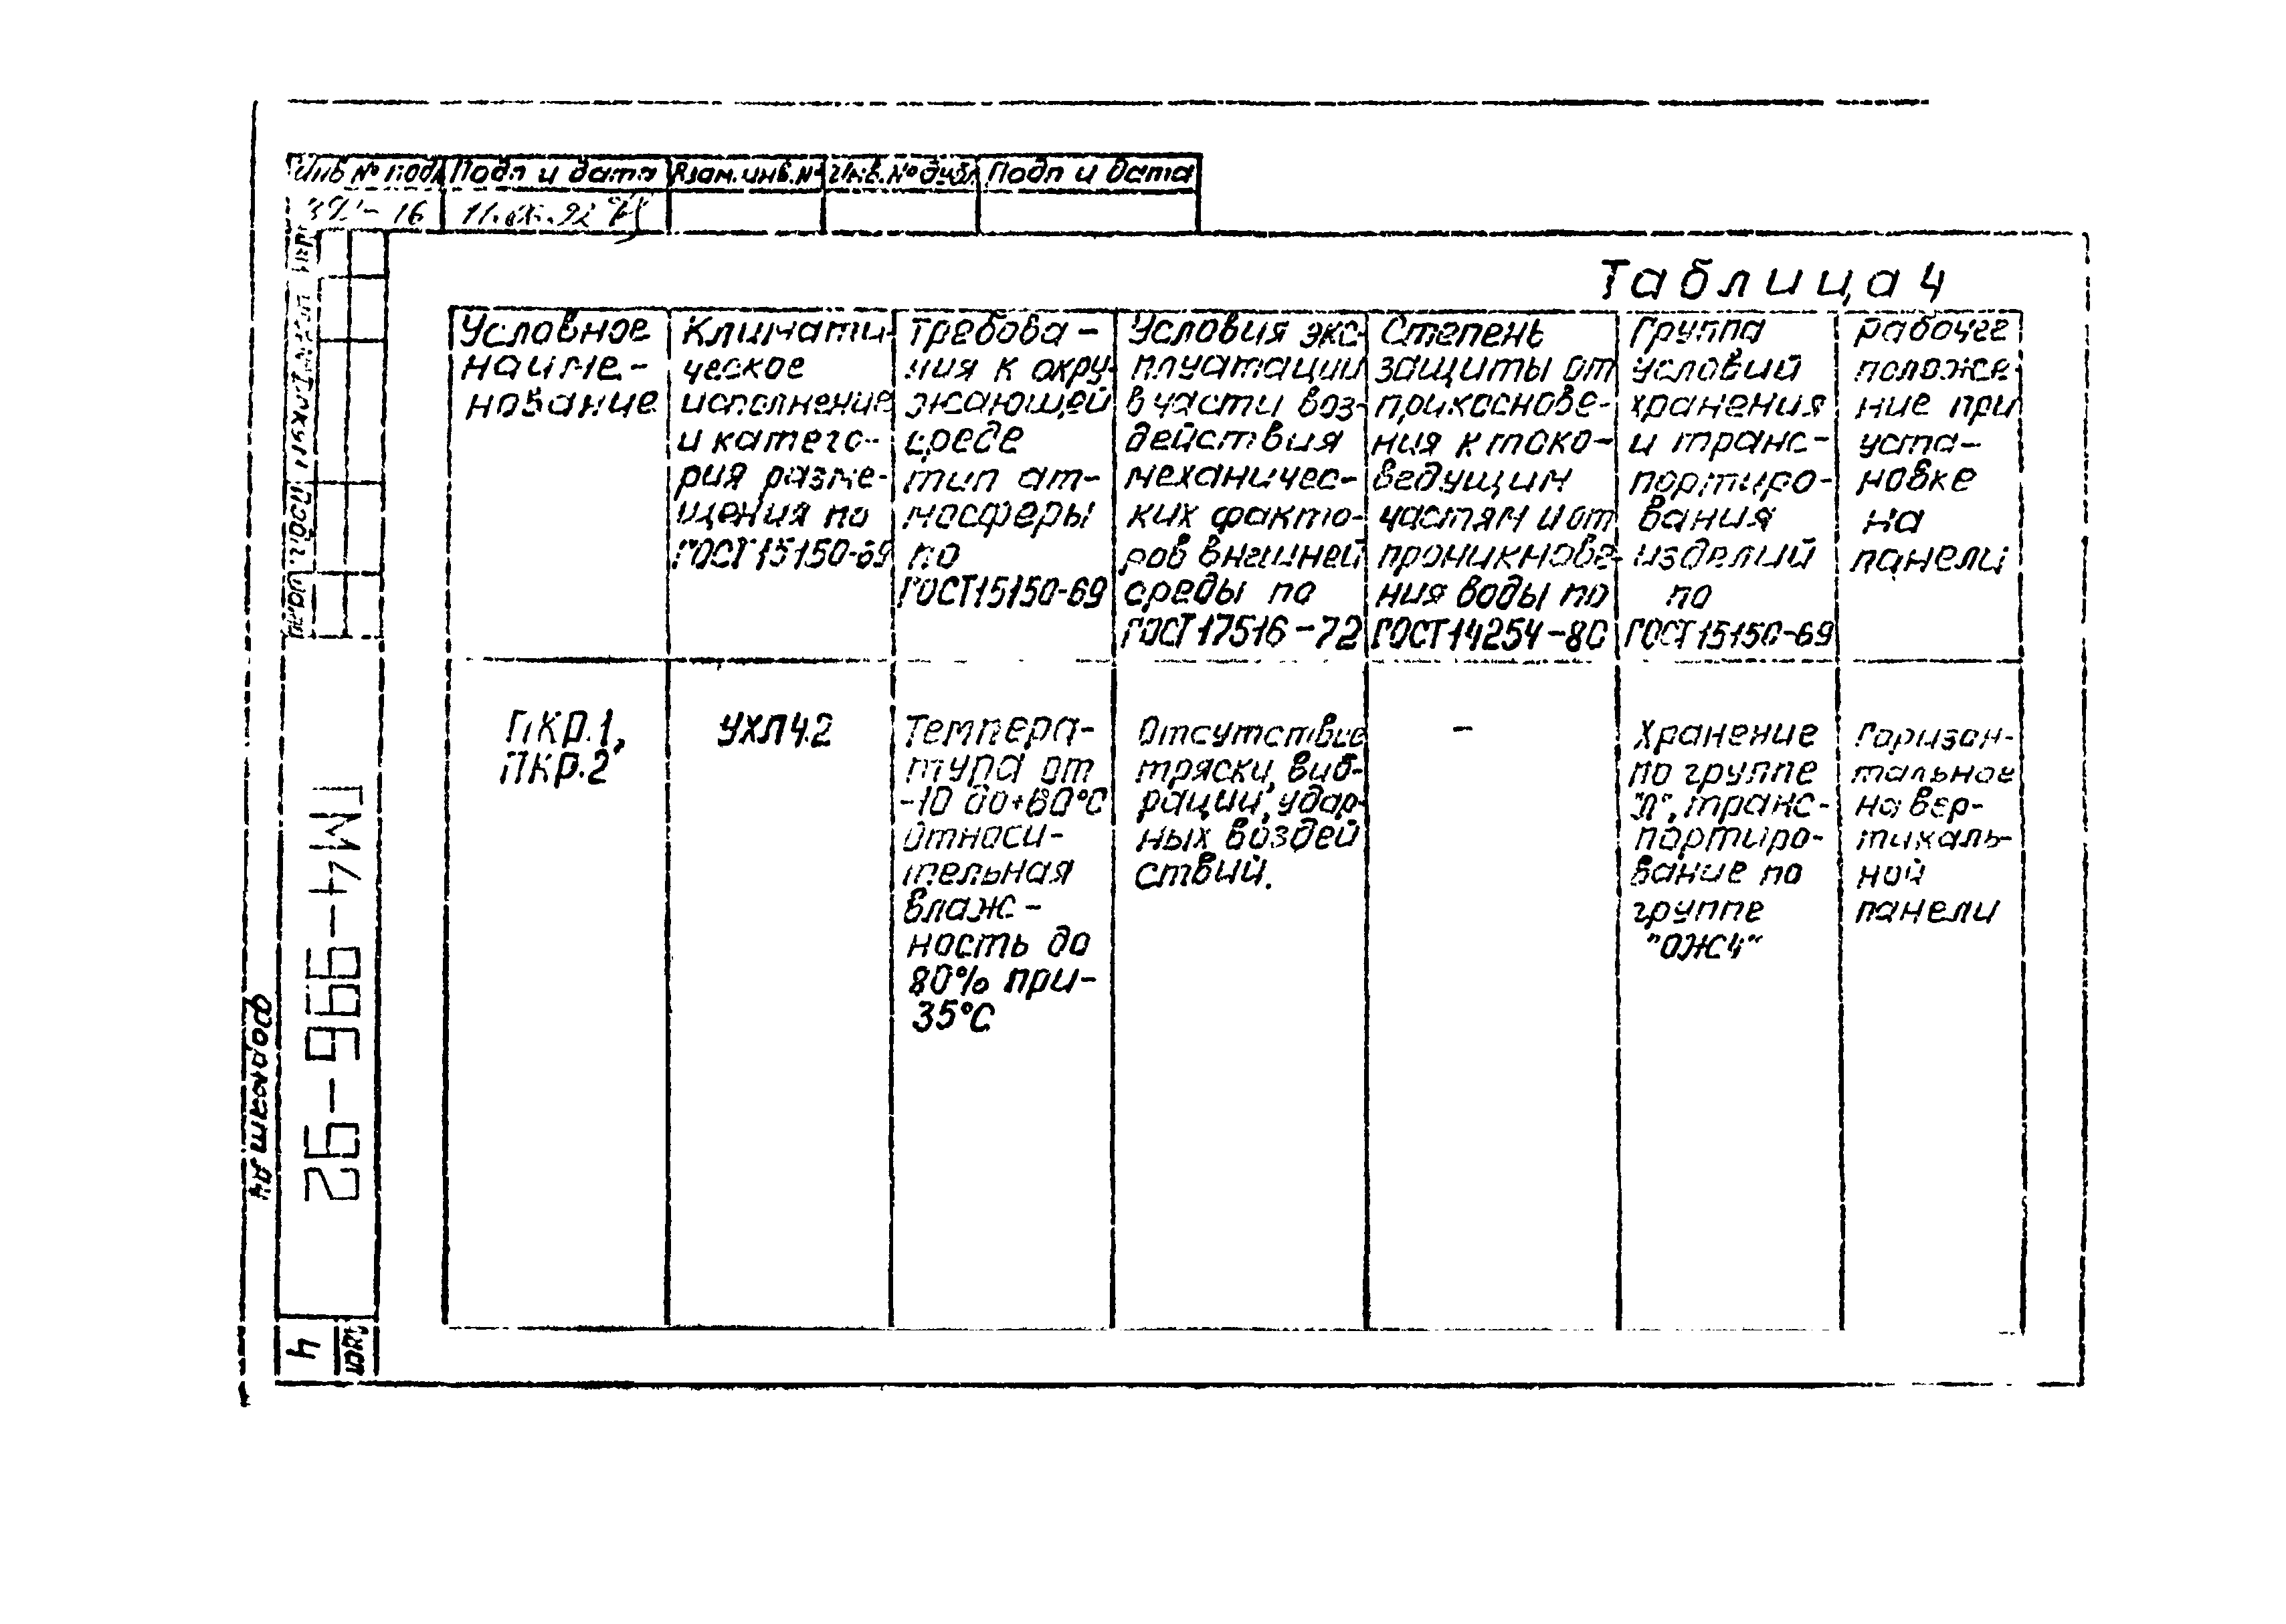 Инв № подл
Подп и дата
Взам. инв. №
Инв. № дубл
Подп и дата
16
Таблица 4
Условное
наиме-
нование
Климати
ческое
исполнение
и катего-
рия разме-
щения по
ГОСТ 15150-69
Требова-
ния к окру-
жающей
среде
тип ат-
мосферы
по
ГОСТ 15150-69
Условия экс-
плуатации
в части воз-
действия
механичес-
ких факто-
ров внешней
среды по
ГОСТ 17516-72
Степень
защиты от
прикоснове-
ния к токо-
ведущим
частям и от
проникнове-
ния воды по
ГОСТ 14254-80
Группа
условий
хранения
и транс-
портиро-
вания
изделий
по
ГОСТ 15150-69
Рабочее
положе-
ние при
уста-
новке
на
панели
ПКР.1,
ПКР.2
УХЛ 4.2
Темпера-
тура от
-10 до +60°С
Относи-
тельная
влаж-
ность до
80% при-
35°С
Отсутствие
тряски, виб-
рации, удар-
ных воздей
ствий.
-
Хранение
по группе
"Л", транс-
портиро-
вание по
группе
"ОЖ4"
Горизон-
тальное
на вер-
тикаль-
ной
панели
ТМ4-996-92
Подп.
Лист
4
Формат А4